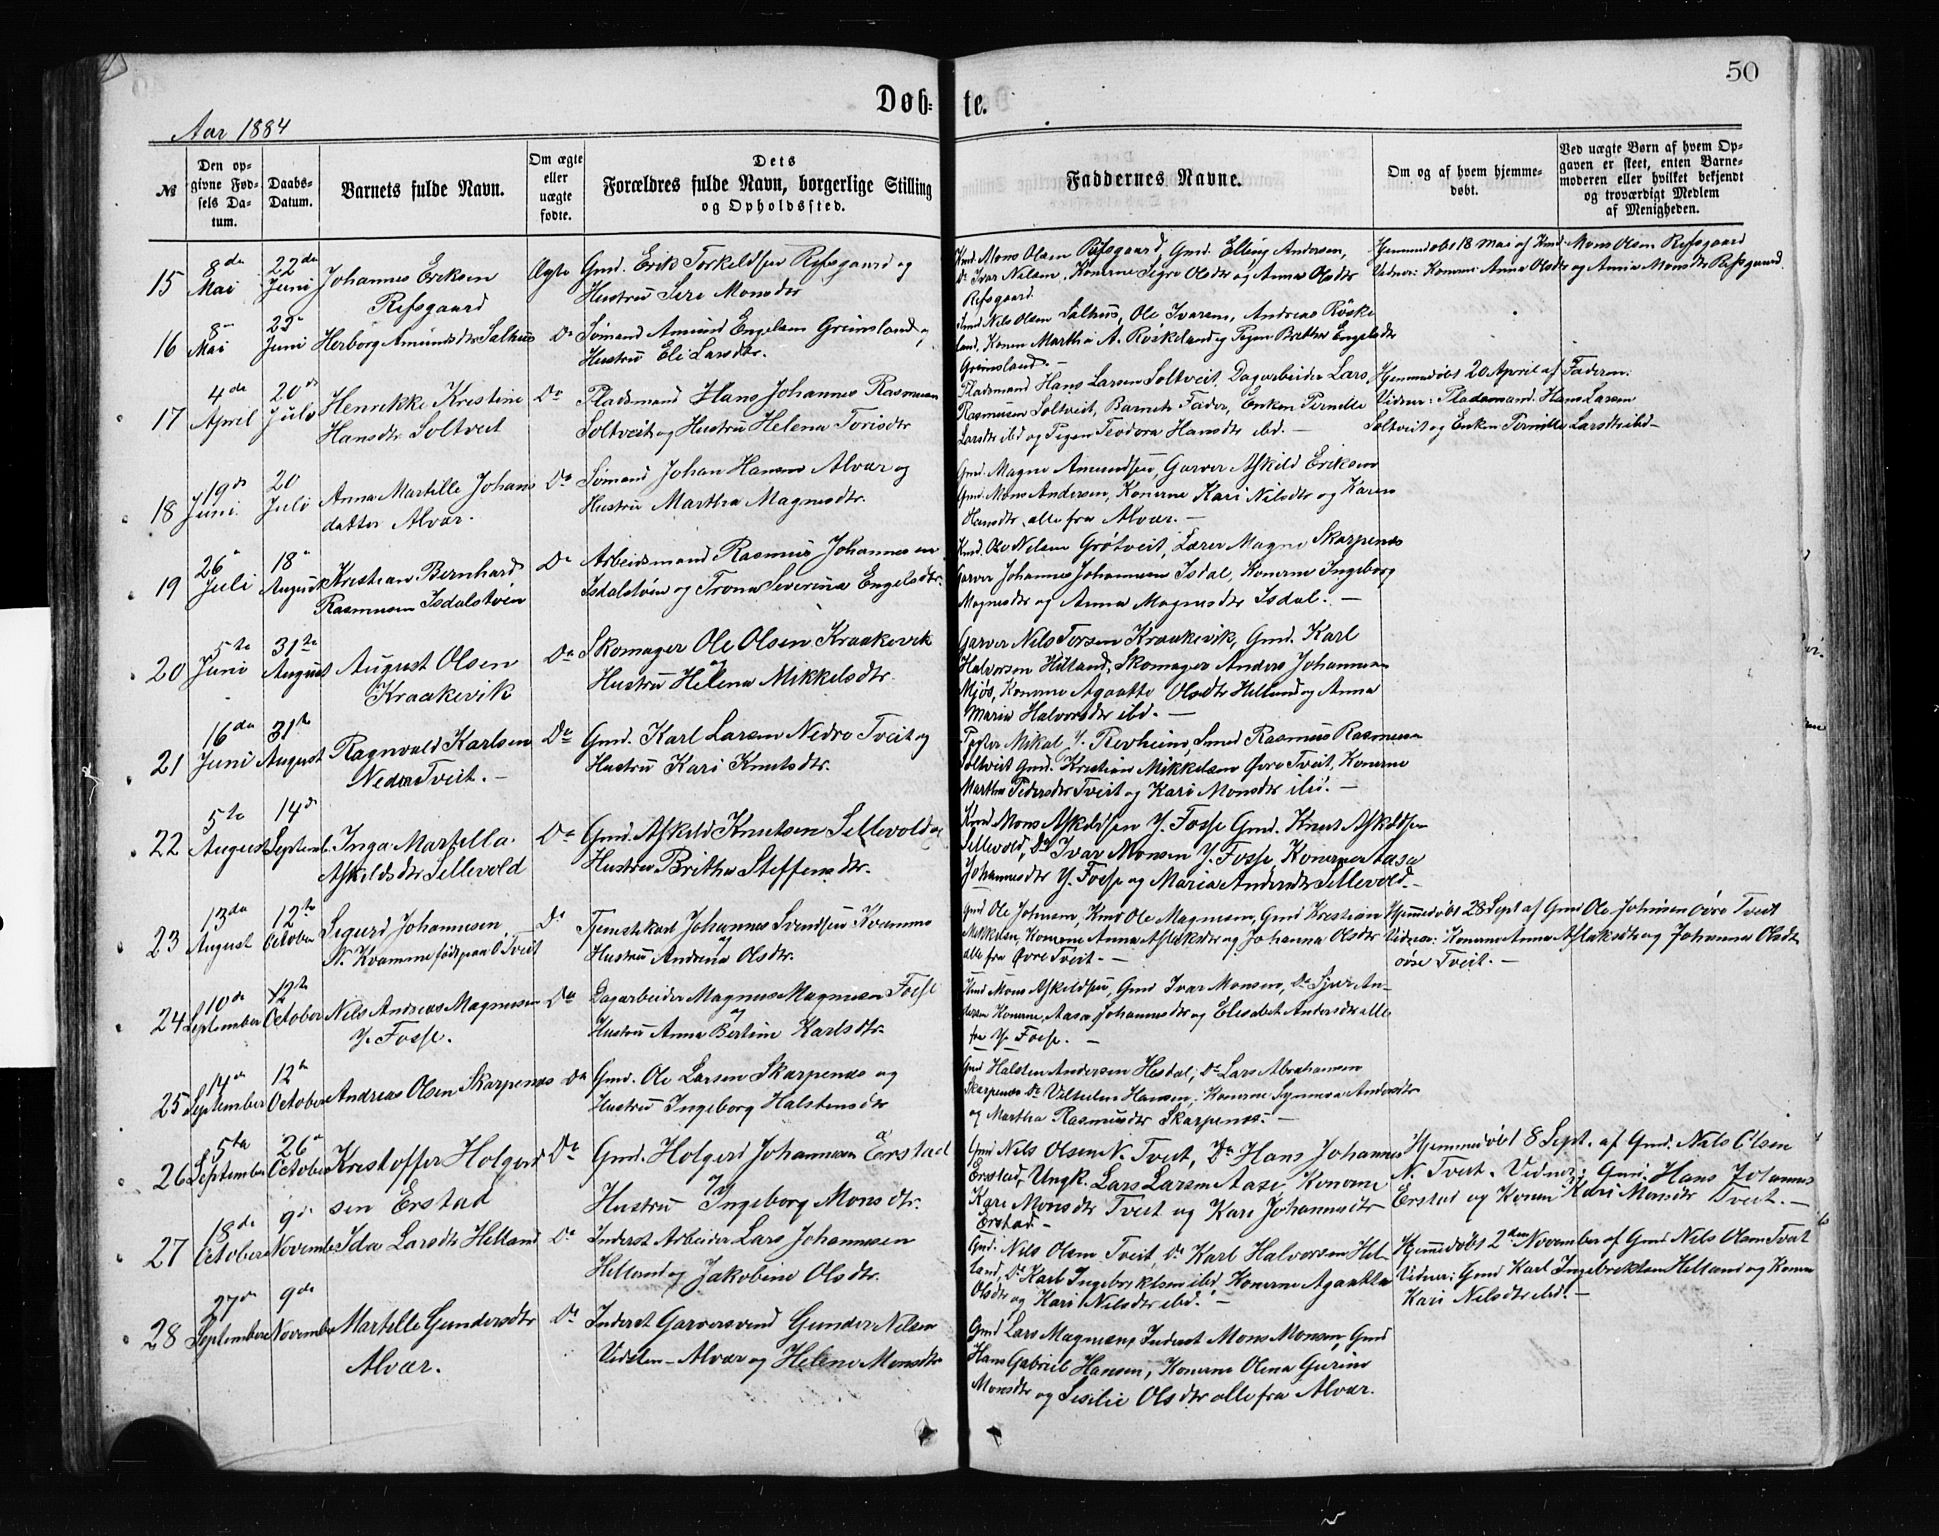 50
Døb- te.
Aar 1884
№ | Den opgivne Fødsels Datum. | Daabs-Datum. | Barnets fulde Navn. | Om ægte eller uægte fødte. | Dets Forældres fulde Navn, borgerlige Stilling og Opholdssted. | Faddernes Navne. | Om og af hvem hjemmedøbt. | Ved uægte Børn af hvem Opgaven er skeet, enten Barnemoderen eller hvilket bekjendt og troværdigt Medlem af Menigheden.
15 8de Mai 22de Juni Johannes Eriksen Refsgaard Ægte Gmd. Erik Torkildsen Refsgaard og
Hustru Siri Monsdtr
Kmd. Mons Olsen Refsgaard, Gmd. Elling Andersen,
Do Ivar Nilsen, Konerne Sigri Olsdtr og Anna Olsdtr
Refsgaard.
Hjemmedøbt 18 Mai af Kmd. Mons Olsen Refsgaard
Vidner: Konen Anna Olsdtr og Anna Monsdtr Refsgaard.
16 8 Mai 22 Juni Herborg Amundsdtr Salhus Do Sømand Amund Engelsen Grimsland,
Hustru Eli Larsdtr.
Smed Nils Olsen Salhus, Ole Ivarsen, Andreas Röske
land, Konen Martha A. Röskeland og Pigen Brithe Engelsdtr
Grimsland.
17 4de April 20 Juli Henrikke Kristine Hansdtr Soltveit Do Pladsmand Hans Johannes Rasmusen
Soltveit og Hustru Helena Torisdtr
Pladsmand Hans Larsen Soltveit, Dagarbeider Lars
Rasmusen Soltveit, Barnets Fader, Enken Pernille
Larsdtr ibd og Pigen Teodora Hansdtr ibd. —
Hjemmedøbt 20 April af Faderen.
Vidner: Pladsmand Hans Larsen
Soltveit og Enken Pernille Larsdtr ibd —
18 19de Juni 20 Juli Anna Martille Johans datter Alvær. Do Sømand Johan Hansen Alvær og
Hustru Martha Magnusdtr.
Gmd. Magne Amundsen, Garver Askild Eriksen
Gmd. Mons Andersen, Konerne Kari Nilsdtr og Karen
Hansdtr, alle fra Alvær. —
19 26 Juli 18 August Kristian Bernhard Rasmusen Isdalstøen Do Arbeidsmand Rasmus Johannesen
Isdalstøen og Trona Severina Engelsdtr.
Kmd. Ole Nilsen Grøtveit, Lærer Magne Skarpenes
Garver Johannes Johannesen Isdal, Konerne Ingeborg
Magnesdtr og Anna Magnesdtr Isdal. —
20 5te Juni 31te August August Olsen Kraakevik Do Skomager Ole Olsen Kraakevik
og Hustru Helena Mikkelsdtr.
Garver Nils Torsen Kraakevik, Gmd. Karl
Halvorsen Helland, Skomager Anders Johannesen
Mjøs, Konerne Agaatte Olsdtr Helland og Anna
Maria Halvorsdtr ibd. —
21 16de Juni 31te August Ragnvald Karlsen Nedre Tveit. — Do Gmd. Karl Larsen Nedre Tveit og
Hustru Kari Knutsdtr.
Mikal Y. Revheim, Smed Rasmus Rasmusen
Soltveit Gmd. Kristian Mikkelsen Øvre Tveit, Konerne
Martha Pedersdtr Tveit og Kari Monsdtr ibd. —
22 5te August 14de Septemb. Inga Martella Askildsdtr Sellevold Do Gmd. Askild Knutsen Sellevold og
Hustru Britha Steffensdtr.
Kmd Mons Askildsen Y. Fosse Gmd. Knut Askildsen
Sellevold, Do Ivar Monsen Y. Fosse, Konerne Aasa
Johannesdtr Y. Fosse og Maria Andersdtr Sellevold. —
23 13de August 12te October Sigurd Johannesen N. Kvamme født paa Ø. Tveit Do Tjenestekarl Johannes Svendsen Kvamme
og Hustru Andrina Olsdtr.
Gmd Ole Johnsen, Kmd Ole Magnesen, Gmd Kristian
Mikkelsen, Konerne Anna Aslaksdtr og Johanna Olsdtr
alle fra Øvre Tveit. —
Hjemmedøbt 28 Sept af Gmd Ole Johnsen øvre Tveit
Vidner: Konerne Anna Aslaksdtr og Johanna Olsdtr
øvre Tveit. —
24 10de September 12te October Nils Andreas Magnusen Y. Fosse. Do Dagarbeider Magnus Magnusen Fosse
og Hustru Anna Bertine Karlsdtr.
Kmd Mons Askildsen, Gmd Ivar Monsen, Do Sjur An-
dersen Konerne, Aasa Johannesdtr og Elisabet Andersdtr alle
fra Y. Fosse. —
25 14de September 12te October Andreas Olsen Skarpenes Do Gmd. Ole Larsen Skarpenes og
Hustru Ingeborg Halstensdtr
Gmd Halsten Andersen Hesdal, Do Lars Abrahamsen
Skarpenes Do Vilhelm Hansen, Konerne Synneva Andersdtr
og Martha Rasmusdtr Skarpenes. —
26 5te September 26 October Kristoffer Holgerd sen Erstad Do Gmd. Holgerd Johannesen Erstad
og Hustru Ingeborg Monsdtr.
Gmd Nils Olsen N. Tveit, Do Hans Johannes
Erstad, Ungk. Lars Larsen Aase Konerne
Kari Monsdtr Tveit og Kari Johannesdtr
Erstad —
Hjemmedøbt 8 Sept. af Gmd. Nils Olsen
N. Tveit. Vidner: Gmd. Hans Johannes
Erstad og Konen Kari Monsdtr Tveit. —
27 18de October 9de Novembr Ida Larsdtr Helland Do Inderst Arbeider Lars Johannesen
Helland og Jakobine Olsdtr.
Gmd. Nils Olsen Tveit, Do Karl Halvorsen Hel-
land, Do Karl Ingebriktsen ibd, Konerne Agaatha
Olsdtr og Kari Nilsdtr ibd. —
Hjemmedøbt 2den November af Gmd Nils Olsen Tveit
Vidner: Gmd Karl Ingebriktsen Helland og Konen
Kari Nilsdtr ibd. —
28 27de September 9de Novembr Martelle Gundersdtr Alvær. Do Inderst Garversvend Gunder Nilsen
Vidsten - Alvær og Helene Monsdtr
Gmd Lars Magnesen, Inderst Mons Monsen, Gmd
Hans Gabriel Hansen, Konerne Olena Gurine
Monsdtr og Sesilie Olsdtr alle fra Alvær.